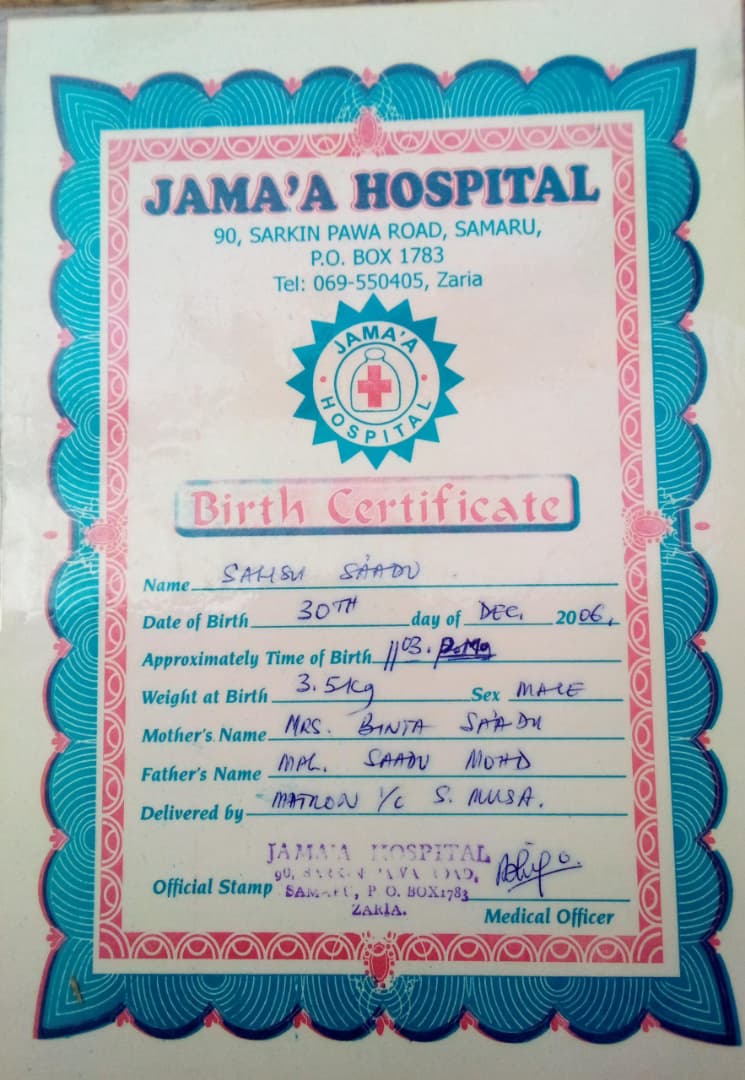 JAMA'A HOSPITAL
90, SARKIN PAWA ROAD, SAMARU,
P.O. BOX 1783
Tel: 069-550405, Zaria
JAMA'A
HOSPITAL
Birth Certificate
Name SAMSU SA'ADU
Date of Birth 30TH day of DEC. 2006.
Approximately Time of Birth 1103.
Weight at Birth 3.5kg Sex MALE
Mother's Name MRS. BINTA SA'ADU
Father's Name MAL. SAADU MOHD
Delivered by MATRON I/C S. MUSA.
JAMA'A HOSPITAL
90, SARKIN PAWA ROAD,
Official Stamp SAMARU, P.O. BOX1783
ZARIA.
Medical Officer